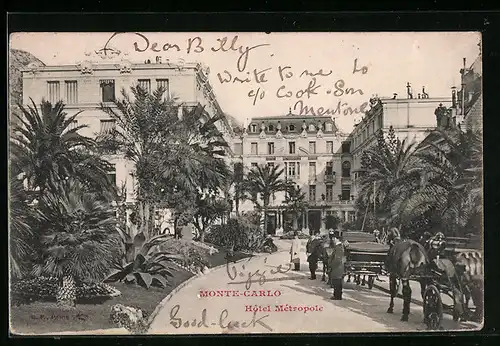 Dear Billy
Write to me to
c/o Cook & Son
Mentone
MONTE-CARLO
Hôtel Métropole
Good-luck